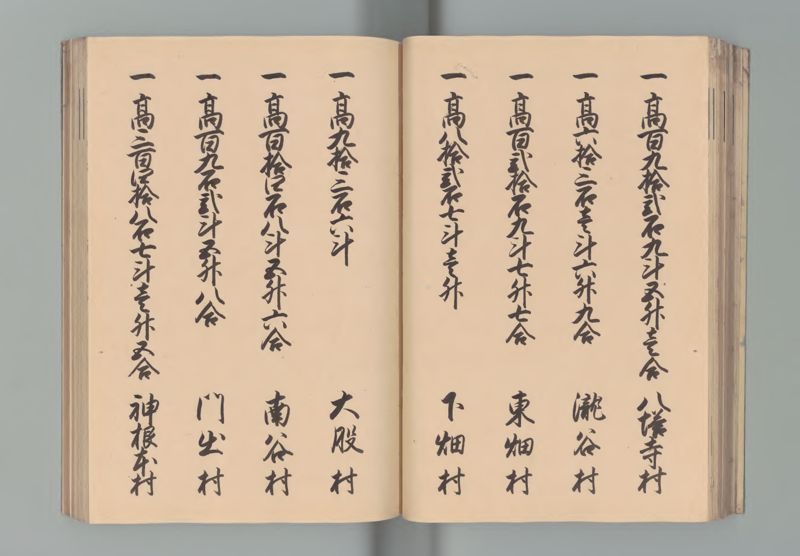 一高百九拾弐石九斗五升壱合 八塔寺村
一高六拾三石壱斗六升九合 瀧谷村
一高百弐拾石九斗七升七合 東畑村
一高八拾弐石七斗壱升 下畑村
一高九拾三石六斗 大股村
一高百拾四石八斗五升六合 南谷村
一高百九石弐斗五升八合 門出村
一高三百四拾八石七斗壱升五合 神根本村